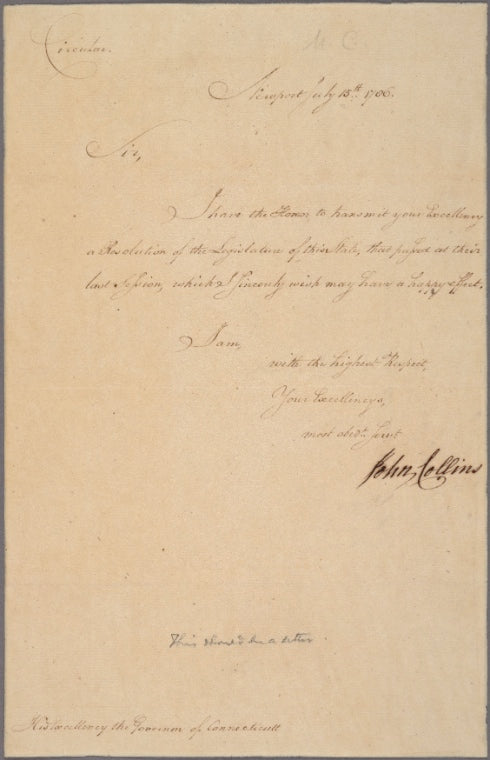 Circular.
M. C.
Newport July 15th. 1786.
Sir,
I have the Honor to transmit your Excellency
a Resolution of the Legislature of this State, that passed at their
last Session, which I sincerely wish may have a happy effect.
I am,
with the highest Respect,
Your Excellencys,
most obedt. servt
John Collins
This should be a letter
His Excellency the Governor of Connecticutt